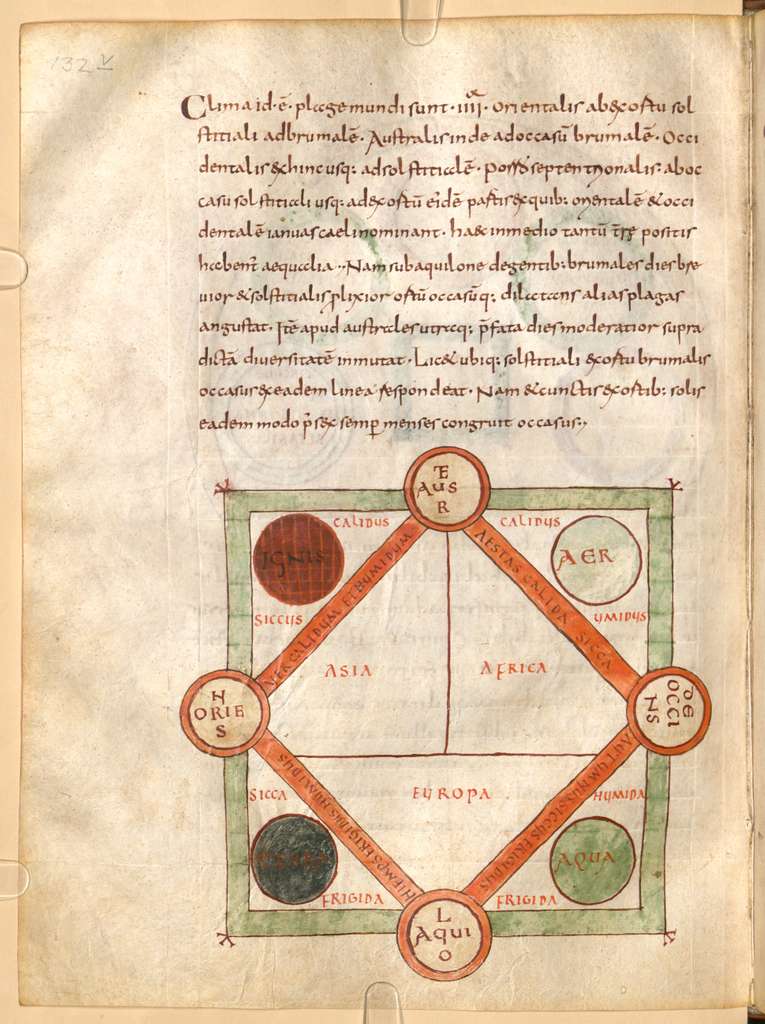 132 v
Clima id · ē · plage mundi sunt · IIII · orientalis ab exortu sol
stitiali ad brumalē · Australis inde ad occasū brumalē · Occi
dentalis & hinc usq: ad solstitialē · Porro septentrionalis ab oc
casu solstitiali usq: ad exortū eidē partis ex quib: orientalē & occi
dentalē ianuas caeli nominant · haec in medio tantū positis
habent aequalia · Nam sub aquilone degentib: brumales dies bre
uior & solstitialis plixior ortū occasūq: dilatans alias plagas
angustat · Itē apud australes utraq: p̄fata dies moderatior supra
dictā diuersitatē inmutat · Lic& ubiq: solstitiali exortu brumalis
occasus ex eadem linea respondeat · Nam & cunctis exortib: solis
eadem modo p sex semp menses congruit occasus
AUSTER
CALIDUS
CALIDUS
IGNIS
AER
SICCUS
UMIDUS
VER CALIDUM ET HUMIDUM
AESTAS CALIDA SICCA
ASIA
AFRICA
ORIENS
OCCIDENS
SICCA
EUROPA
HUMIDA
HIEMPS FRIGIDUS HUMIDUS
AUTUMNUS SICCUS FRIGIDUS
TERRA
AQUA
FRIGIDA
FRIGIDA
AQUILO